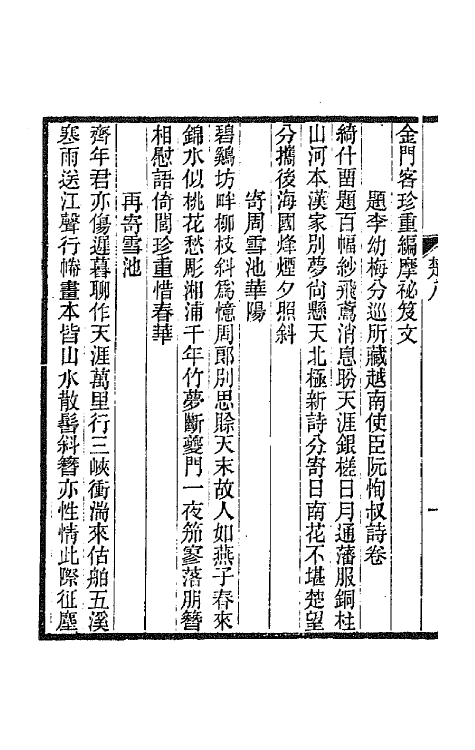 金門客珍重編摩祕笈文
題李幼梅分巡所藏越南使臣阮恂叔詩卷
綺什留題百幅紗飛鳶消息盼天涯銀槎日月通藩服銅柱
山河本漢家別夢尙懸天北極新詩分寄日南花不堪楚望
分攜後海國烽煙夕照斜
寄周雪池華陽
碧鷄坊畔柳枝斜爲憶周郞別思賖天末故人如燕子春來
錦水似桃花愁彫湘浦千年竹夢斷夔門一夜笳寥落朋簪
相慰語倚閭珍重惜春華
再寄雪池
齊年君亦傷遲暮聊作天涯萬里行三峽衝湍來估舶五溪
寒雨送江聲行帷畫本皆山水散髻斜簪亦性情此際征塵
楚八
一